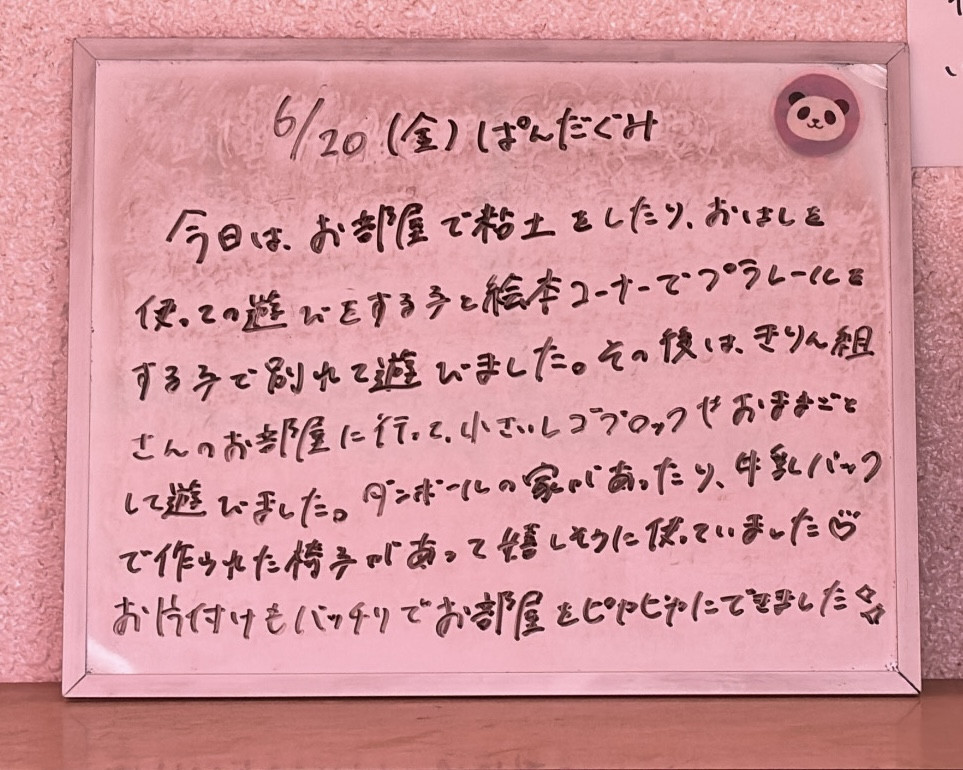 6/20 (金) ぱんだぐみ
今日は、お部屋で粘土をしたり、おはしを
使っての遊びをする子と絵本コーナーでプラレールを
する子で別れて遊びました。その後は、きりん組
さんのお部屋に行って、小さいレゴブロックやおままごと
して遊びました。ダンボールの家があったり、牛乳パック
で作られた椅子があって嬉しそうに使っていました♡
お片付けもバッチリでお部屋をピカピカにできました✨